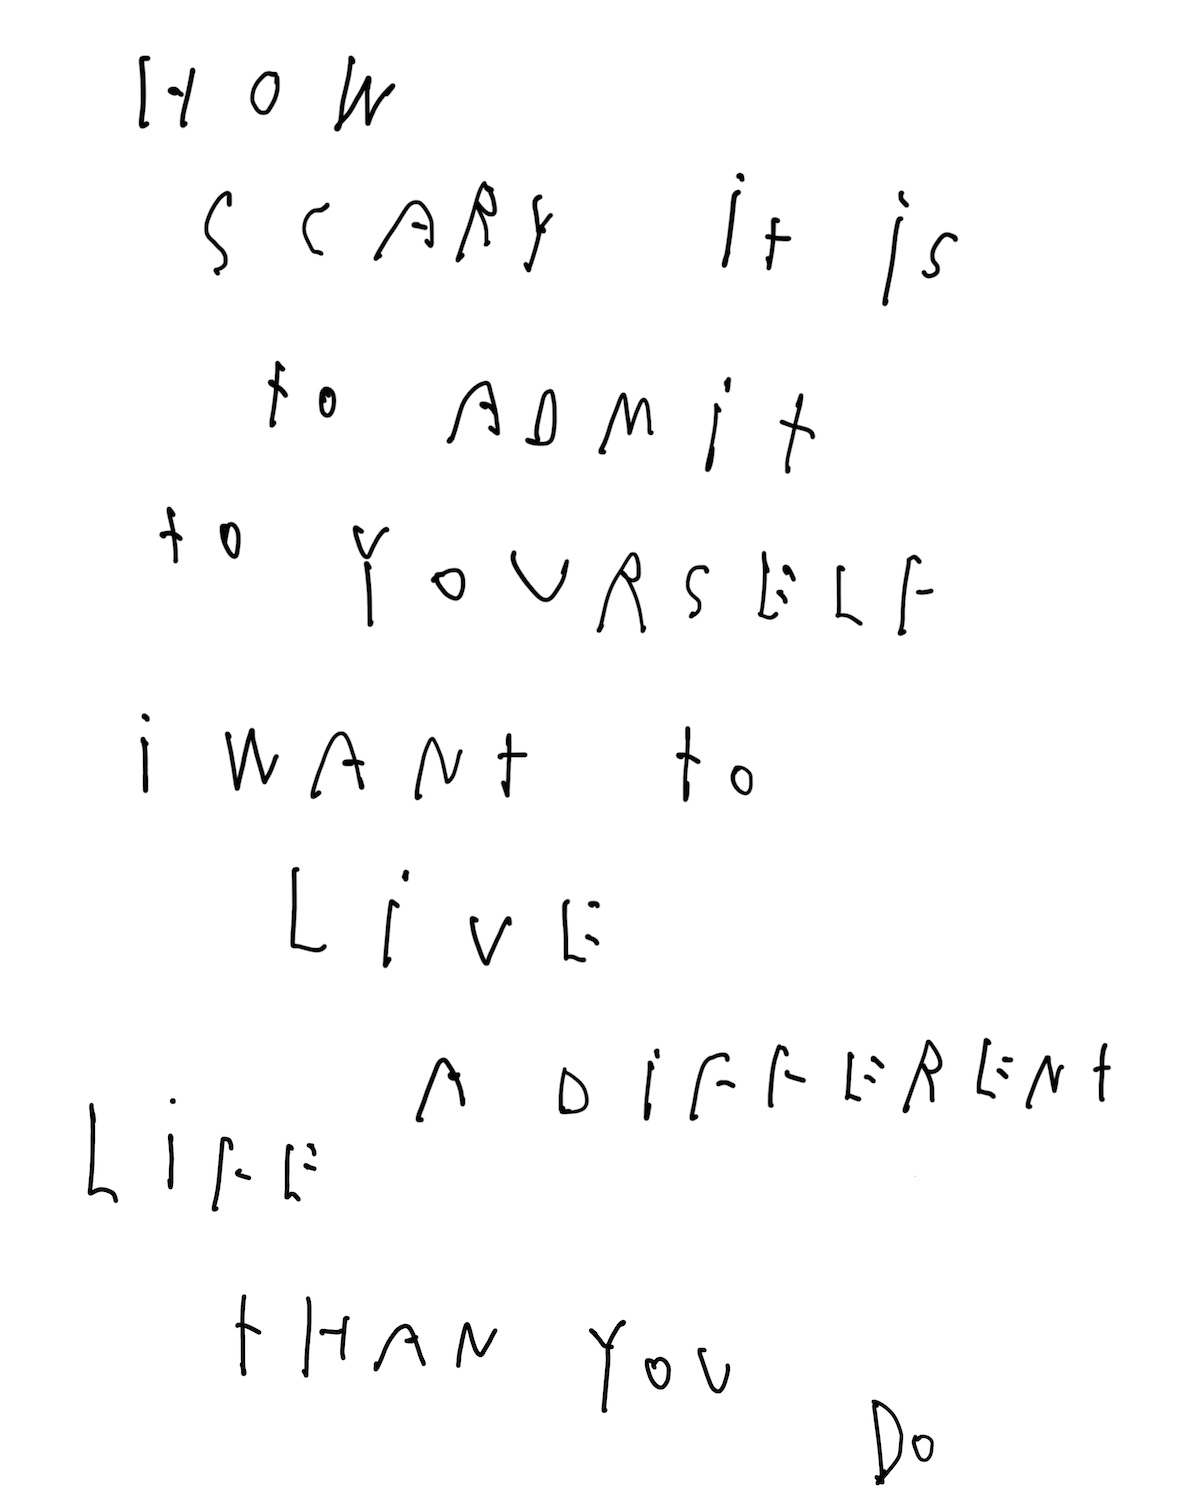 HOW
SCARY it is
to ADMit
to YOURSELF
i WANt to
LiVE
A DiFFERENt
LiFE
tHAN YOU
DO